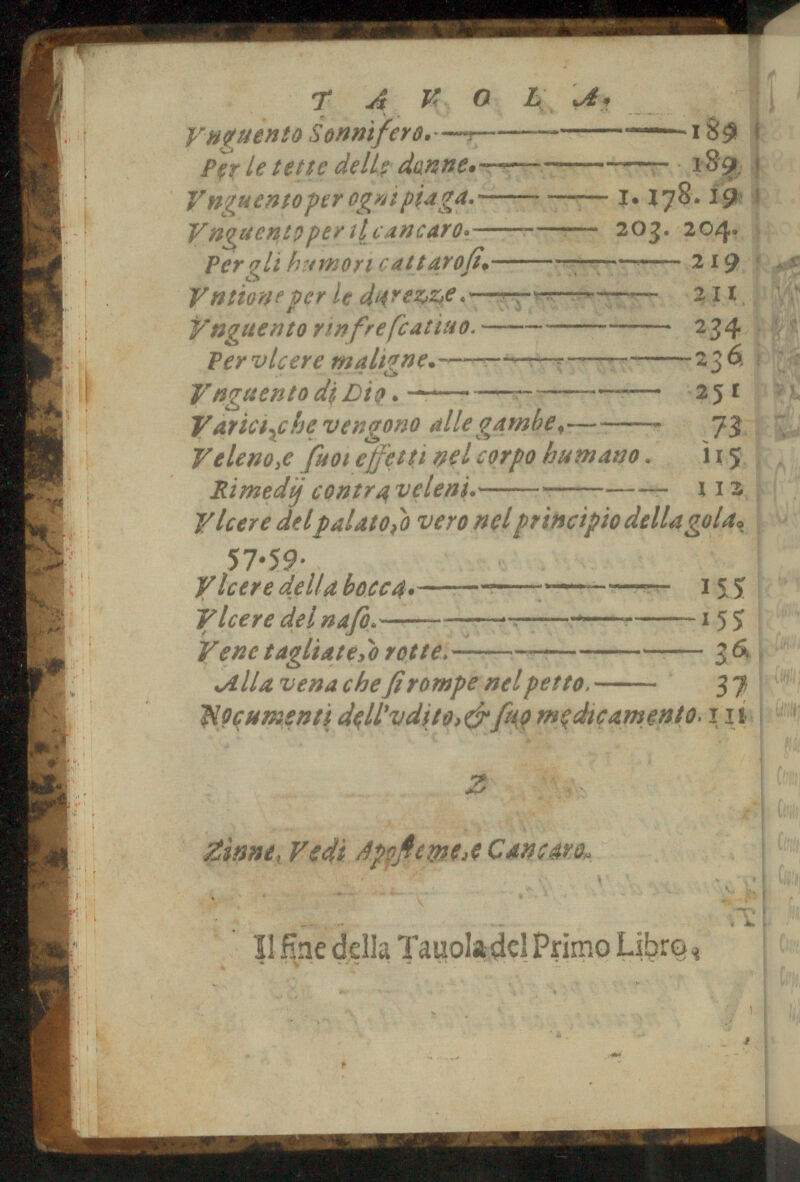 TAVOLA.
Vnguento Sonnifero. 189
Per le tette delle donne. 189
Vnguento per ogni piaga. 1. 178. 19
Vnguento per il cancaro. 203. 204.
Per gli humori cattarosi. 219
Vntione per le durezze. 211.
Vnguento rinfrescatiuo. 234
Per vlcere maligne. 236
Vnguento di Dio. 251
Varici, che vengono alle gambe, 73
Veleno, e suoi effetti nel corpo humano. 115
Rimedij contra veleni. 112
Vlcere del palato, ò vero nel principio della gola.
57.59.
Vlcere della bocca. 155
Vlcere del naso. 155
Vene tagliate, ò rotte. 36
Alla vena che si rompe nel petto. 37
Nocumenti dell'vdito, & suo medicamento. 111
Z
Zinne, Vedi Aposteme, e Cancaro.
Il fine della Tauola del Primo Libro.